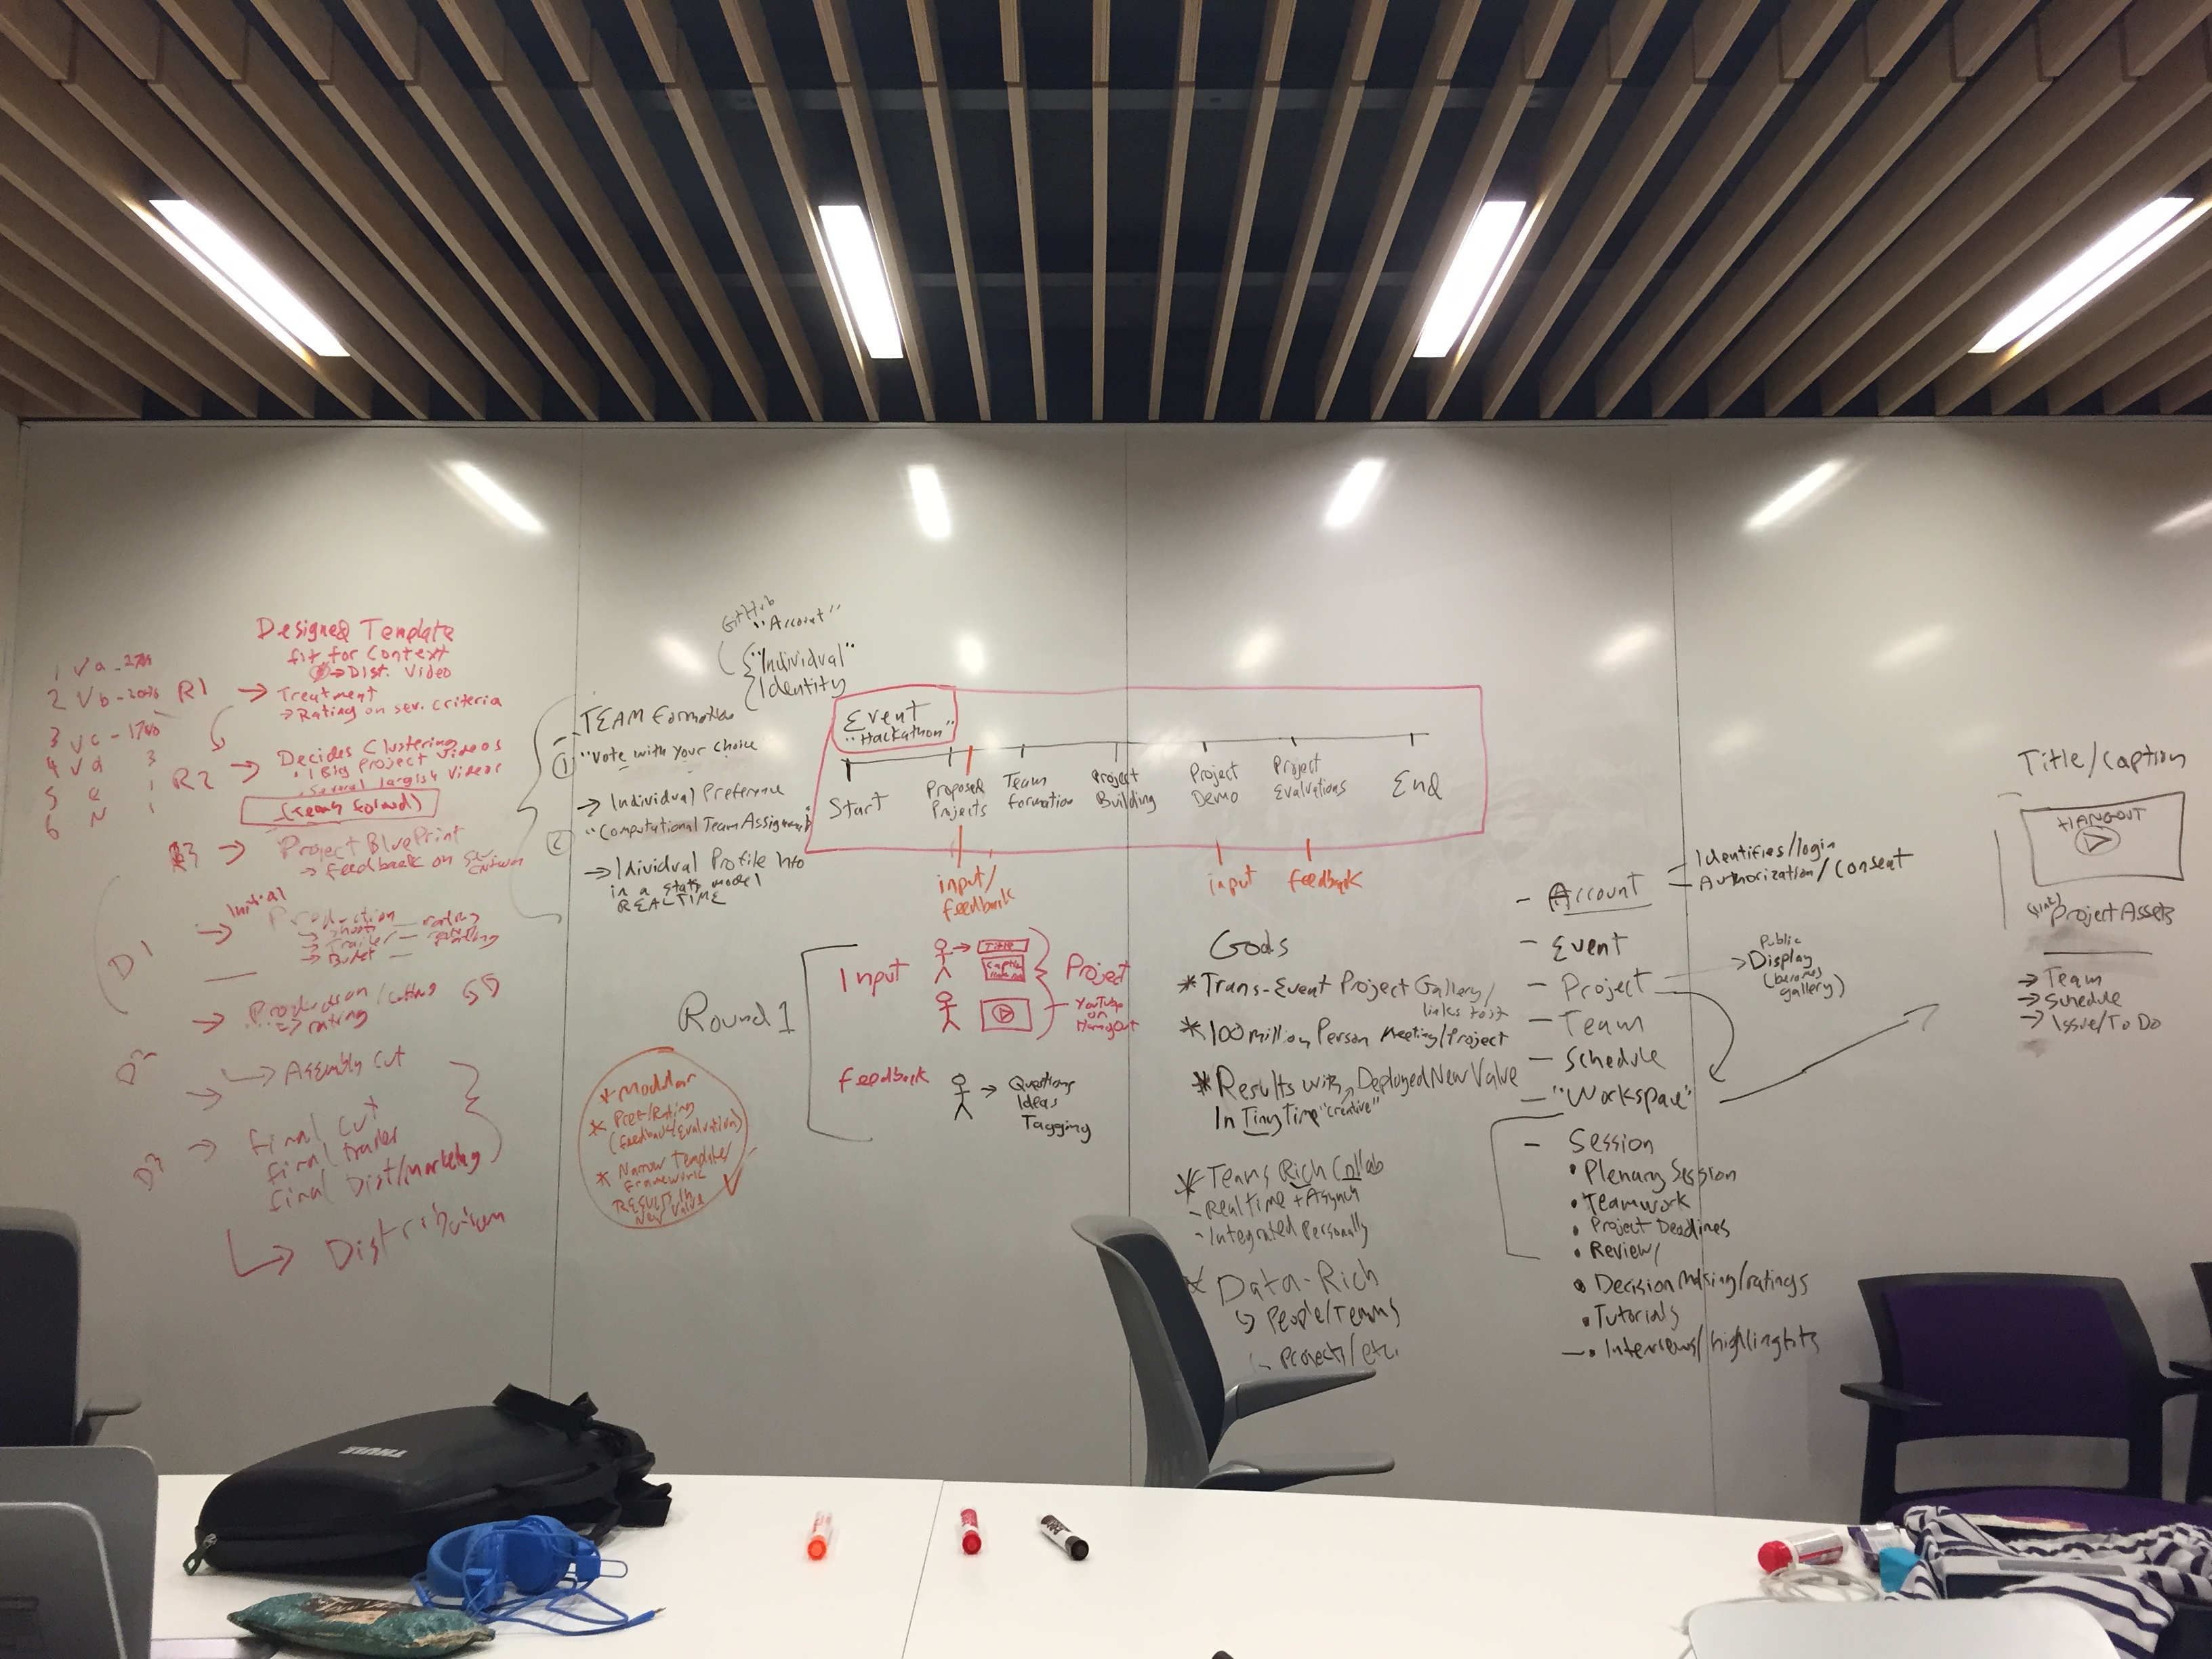 Designed Template
fit for Context
→ Dist. Video
1 Va - 27
2 Vb - 20
3 Vc - 17
4 Vd 3
5 e 1
6 N 1
R1 → Treatment
→ Rating on sev. criteria
R2 → Decides Clustering
• 1 Big Project Videos
• Several largish Videos
(teams formed)
R3 → Project BluePrint
→ feedback on sev.
D1
→ Initial
Production
→ Shoots — rating
→ Trailer — rating
→ Budget —
→ Production / cutting
→ rating
→ Assembly cut
D3 → final cut
final trailer
final Dist/marketing
→ Distribution
GitHub
"Account"
"Individual"
Identity
- TEAM formation
① "Vote with your choice
→ Individual Preference
② "Computational Team Assignment
→ Idividual Profile Info
in a stats model
REALTIME
Event
"Hackathon"
Start
Proposed
Projects
Team
formation
Project
Building
Project
Demo
Project
Evaluations
End
input/
feedback
input
feedback
Round 1
Input
→ Title
Caption
Project
YouTube
on
HangOut
feedback
→ Questions
Ideas
Tagging
* Modular
* Peer/Rating
(feedback/Evaluation)
* Narrow Template/
framework
RESULTS IN
New Value
Goals
* Trans-Event Project Gallery/
links to
* 100 million Person Meeting/Project
* Results with Deployed New Value
In Tiny Time "Creative"
* Teams Rich Collab
- Realtime + Asynch
- Integrated Personally
* Data-Rich
↳ People/Teams
Projects/etc.
- Account
- Identifies/login
- Authorization/Consent
- Event
- Project
→ Public
Display
(becomes
gallery)
- Team
- Schedule
- "Workspace"
- Session
• Plenary Session
• Teamwork
• Project Deadlines
• Review/
• Decision Making/ratings
• Tutorials
• Interviews/highlinghts
Title/Caption
HANGOUT
Project Assets
→ Team
→ Schedule
→ Issue/To Do
THULE